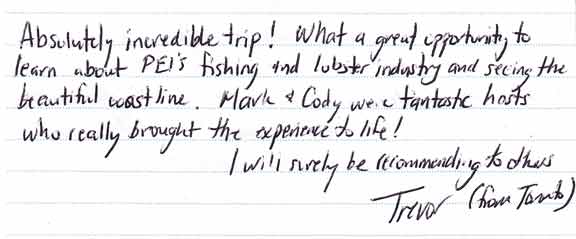 Absolutely incredible trip! What a great opportunity to
learn about PEI's fishing and lobster industry and seeing the
beautiful coastline. Mark & Cody were fantastic hosts
who really brought the experience to life!
I will surely be recommending to others
Trevor (from Toronto)